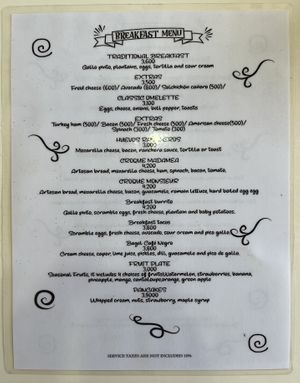 BREAKFAST MENU
TRADITIONAL BREAKFAST
3,600
Gallo pinto, plantains, eggs, tortilla and sour cream
EXTRAS
3,500
Fried cheese (600)/ Avocado (500)/ Salchichón cañero (500)/
CLASSIC OMELETTE
3,100
Eggs, cheese, onions, bell pepper, toasts
EXTRAS
Turkey ham (500)/ Bacon (500)/ Fresh cheese (500)/ American cheese(500)/
Spinach (500)/ Tomato (300)
HUEVOS RANCHEROS
3,000
Mozzarella cheese, bacon, ranchera sauce, tortilla or toast
CROQUE MADAMEA
4,200
Artisan bread, mozzarella cheese, ham, spinach, bacon, tomato,
CROQUE MONSIEUR
4,200
Artesan bread, mozzarella cheese, bacon, guacamole, romain lettuce, hard boiled egg
Breakfast burrito
4,200
Gallo pinto, scramble eggs, fresh cheese, plantain and baby potatoes.
Breakfast tacos
3,800
Scramble eggs, fresh cheese, avocado, sour cream and pico gallo
Bagel Café Negro
3,600
Cream cheese, caper, lime juice, pickles, dill, guacamole and pico de gallo.
FRUIT PLATE
3,000
Seasonal Fruits, it includes 4 choices of fruits:Watermelon, strawberries, banana,
pineapple, mango, cantaloupe,orange, green apple
PANCAKES
3,5000
Whipped cream, nuts, strawberry, maple syrup
SERVICE TAXES ARE NOT INCLUDED 10%